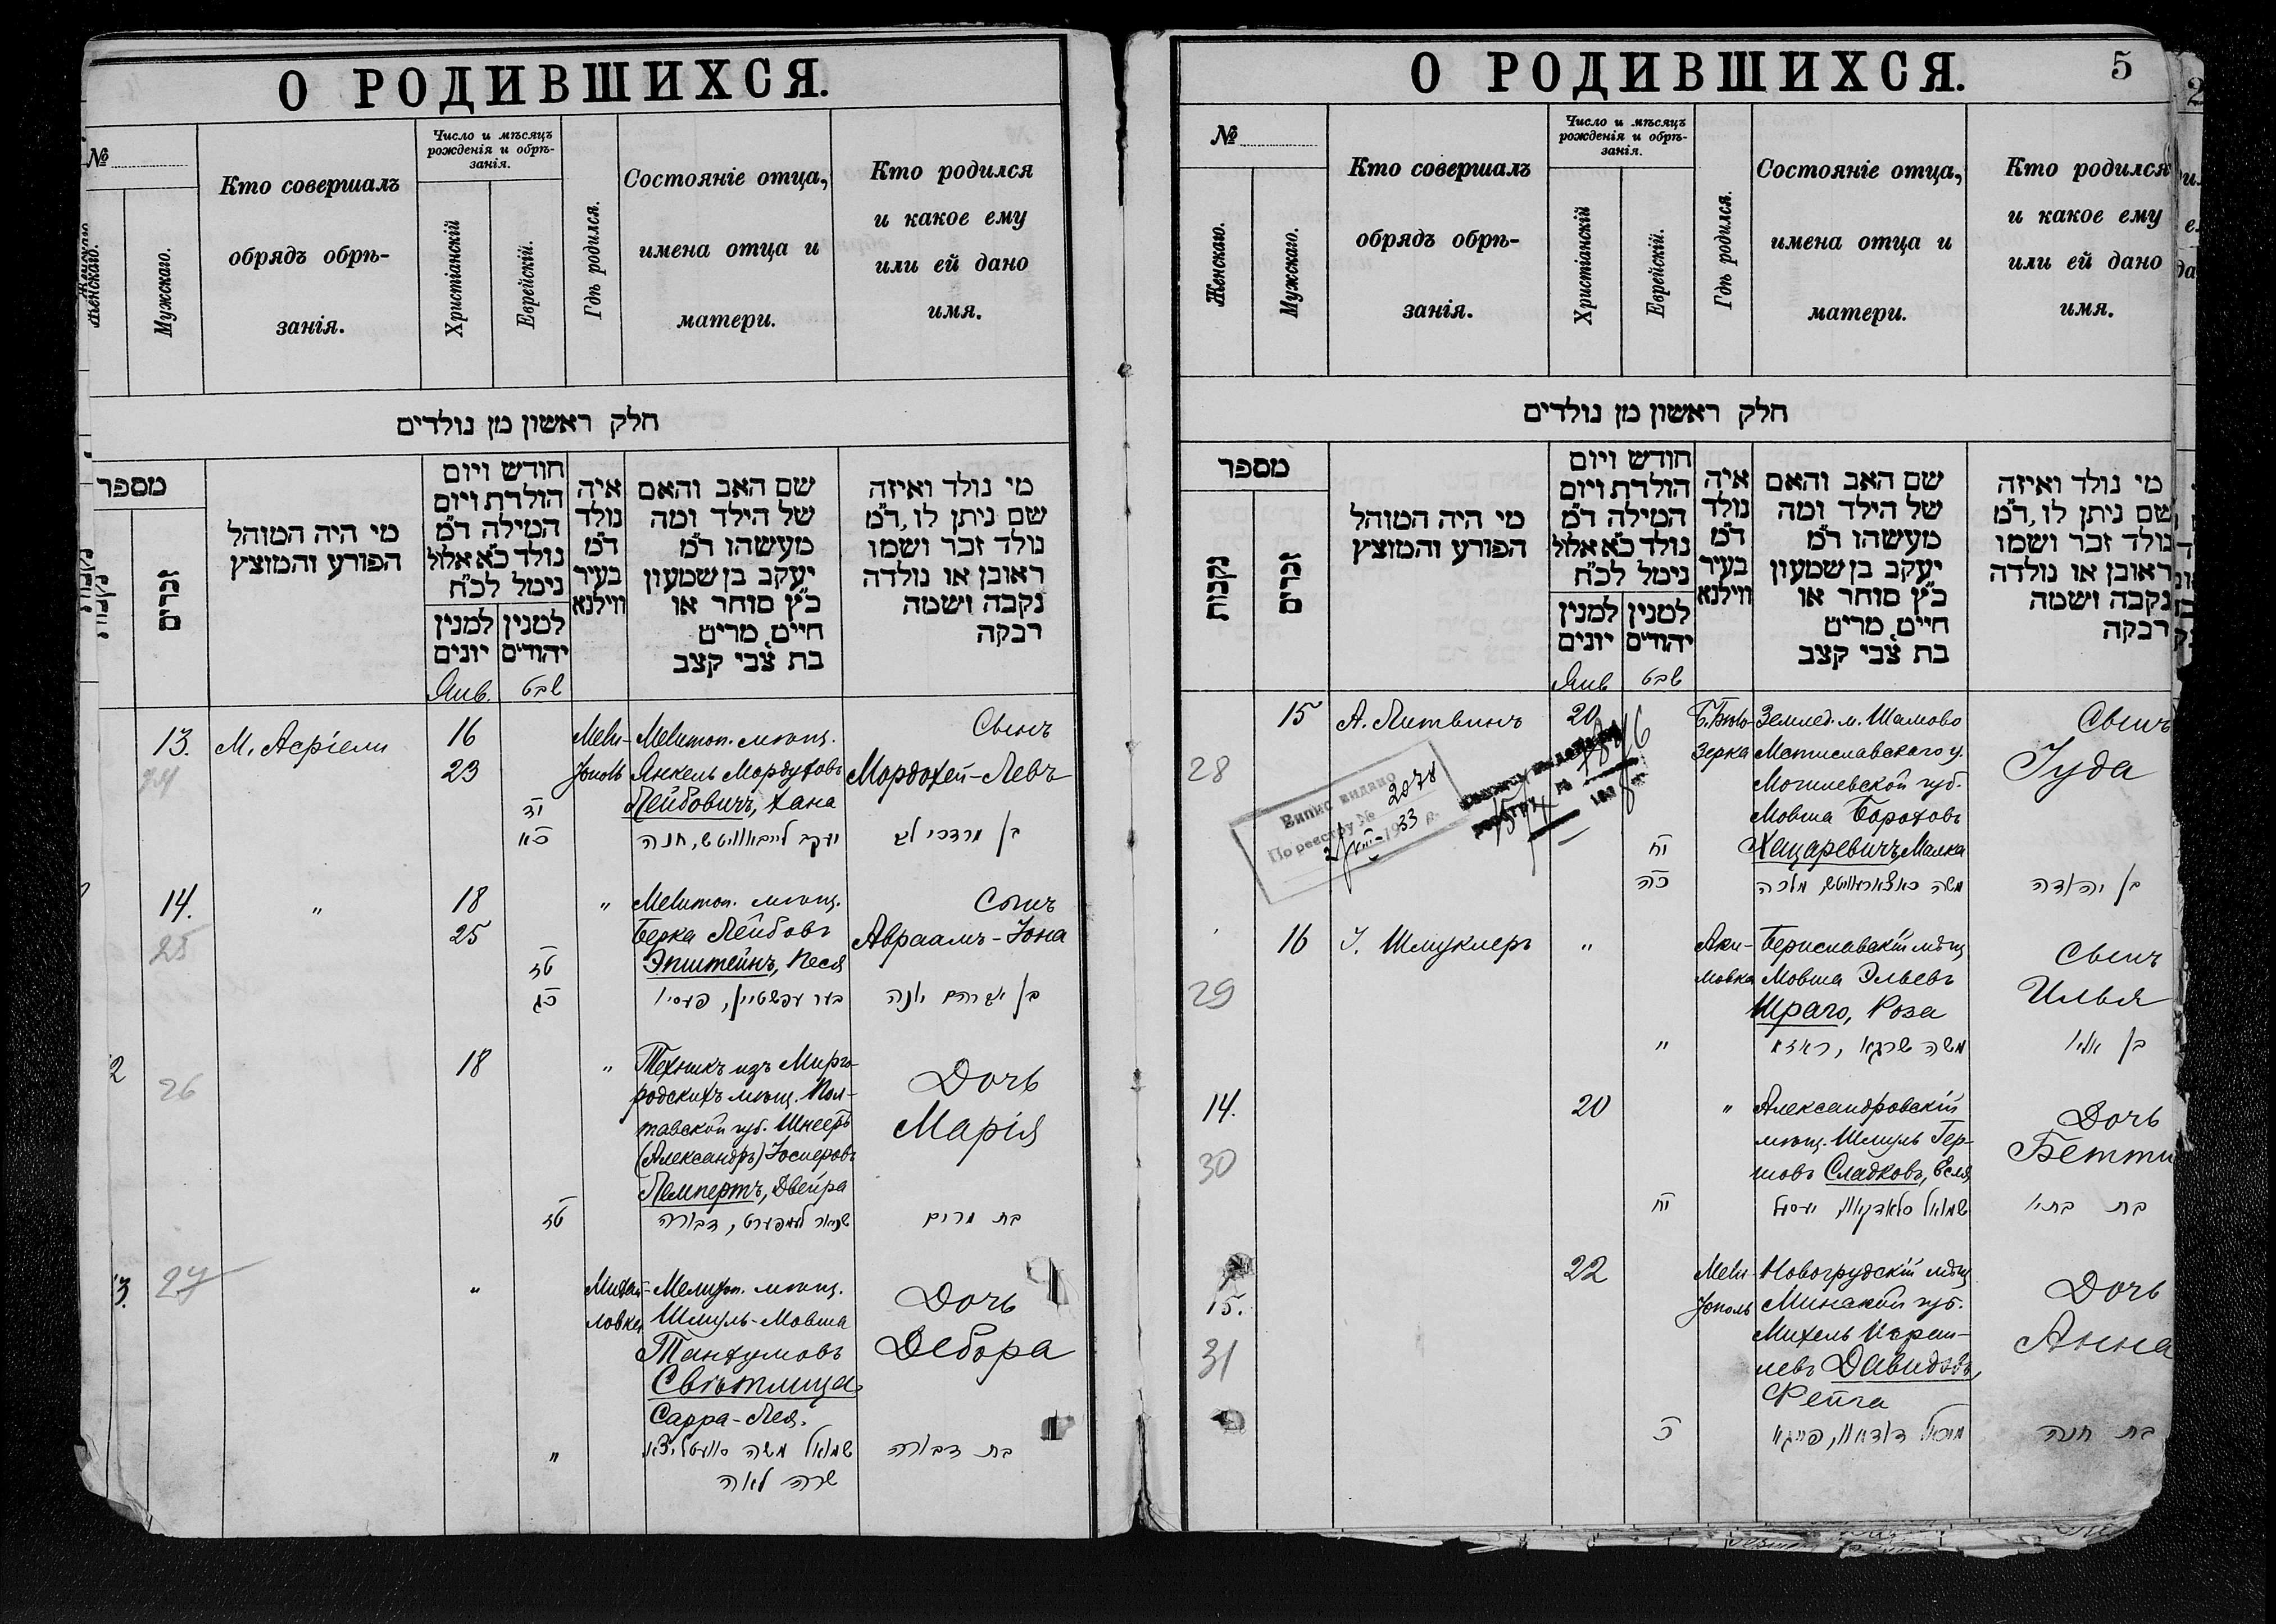 О РОДИВШИХСЯ.
№
Женскаго.
Мужскаго.
Кто совершалъ
обрядъ обрѣ-
занія.
Число и мѣсяцъ
рожденія и обрѣ-
занія.
Христіанскій
Еврейскій.
Гдѣ родился.
Состояніе отца,
имена отца и
матери.
Кто родился
и какое ему
или ей дано
имя.
חלק ראשון מן נולדים
מספר
זכרים
מי היה המוהל
הפורע והמוצץ
חודש ויום
הולדת ויום
המילה ד״מ
נולד כ״א אלול
נימל לכ״ח
למנין
יונים
למנין
יהודים
איה
נולד
ד״מ
בעיר
ווילנא
שם האב והאם
של הילד ומה
מעשהו ד״מ
יעקב בן שמעון
כ״ץ סוחר או
חיים, מרים
בת צבי קצב
מי נולד ואיזה
שם ניתן לו, ד״מ
נולד זכר ושמו
ראובן או נולדה
נקבה ושמה
רבקה
Янв. שבט
13. М. Асріели 16 Мели- Мелитоп. мѣщ. Сынъ
24 23 тополь Янкель Мордуховъ Мордохей-Левъ
יד Лейбовичъ, Хана
כא יעקב לייבאוויטש, חנה בן מרדכי לב
14. " 18 " Мелитоп. мѣщ. Сынъ
25 25 Берка Лейбовъ Авраамъ-Іона
טז Эпштейнъ, Песя
כג בער עפשטיין, פעסיא בן אברהם יונה
2 18 " Техникъ изъ Мирго- Дочь
26 родскихъ мѣщ. Пол-
тавской губ. Шнееръ Марія
(Александръ) Іосперовъ
Лемпертъ, Двейра
טז שניאור לעמפערט, דבורה בת מרים
3. 27 " Михай- Мелитоп. мѣщ. Дочь
ловка Шмуль-Мовша
Танхумовъ Дебора
Свѣтлица
Сарра-Лея.
" שמואל משה סוועטליצא בת דבורה
שרה לאה
О РОДИВШИХСЯ. 5
№
Женскаго.
Мужскаго.
Кто совершалъ
обрядъ обрѣ-
занія.
Число и мѣсяцъ
рожденія и обрѣ-
занія.
Христіанскій
Еврейскій.
Гдѣ родился.
Состояніе отца,
имена отца и
матери.
Кто родился
и какое ему
или ей дано
имя.
חלק ראשון מן נולדים
מספר
נקבות
זכרים
מי היה המוהל
הפורע והמוצץ
חודש ויום
הולדת ויום
המילה ד״מ
נולד כ״א אלול
נימל לכ״ח
למנין
יונים
למנין
יהודים
איה
נולד
ד״מ
בעיר
ווילנא
שם האב והאם
של הילד ומה
מעשהו ד״מ
יעקב בן שמעון
כ״ץ סוחר או
חיים, מרים
בת צבי קצב
מי נולד ואיזה
שם ניתן לו, ד״מ
נולד זכר ושמו
ראובן או נולדה
נקבה ושמה
רבקה
Янв שבט
15 А. Литвинъ 20 Б.Бѣло- Землед. м. Шамово Сынъ
28 зерка Мстиславскаго у. Іуда
Могилевской губ.
Випис видано
По реестру № 2078
1933 р.
Мовша Бороховъ
יח Хацаревичъ, Малка
כה משה כאצארעוויטש, מלכה בן יהודה
16 І. Шмуклеръ " Аки- Бериславскій мѣщ Сынъ
29 мовка Мовша Эльевъ Илья
Шраго, Роза
" משה שרגא, ראזא בן אליי
14. 20 " Александровскій Дочь
мѣщ. Шмуль Гер- Бетти
30 шовъ Сладковъ, Еселя
יח שמואל סלאדקאוו, בת בתיי
22 Мели- Новогрудскій мѣщ Дочь
15. тополь Минской губ.
Михель Израи- Анна
31 левъ Давидовъ,
Фейга
כ מיכאל דודאוו, פייגא בת חנה